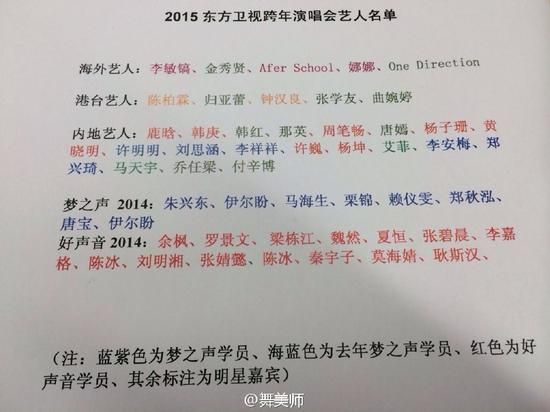 2015 东方卫视跨年演唱会艺人名单
海外艺人：李敏镐、金秀贤、Afer School、娜娜、One Direction
港台艺人：陈柏霖、归亚蕾、钟汉良、张学友、曲婉婷
内地艺人：鹿晗、韩庚、韩红、那英、周笔畅、唐嫣、杨子珊、黄
晓明、许明明、刘思涵、李祥祥、许巍、杨坤、艾菲、李安梅、郑
兴琦、马天宇、乔任梁、付辛博
梦之声 2014：朱兴东、伊尔盼、马海生、栗锦、赖仪雯、郑秋泓、
唐宝、伊尔盼
好声音 2014：余枫、罗景文、梁栋江、魏然、夏恒、张碧晨、李嘉
格、陈冰、刘明湘、张婧懿、陈冰、秦宇子、莫海婧、耿斯汉、
（注：蓝紫色为梦之声学员、海蓝色为去年梦之声学员、红色为好
声音学员、其余标注为明星嘉宾）
@舞美师